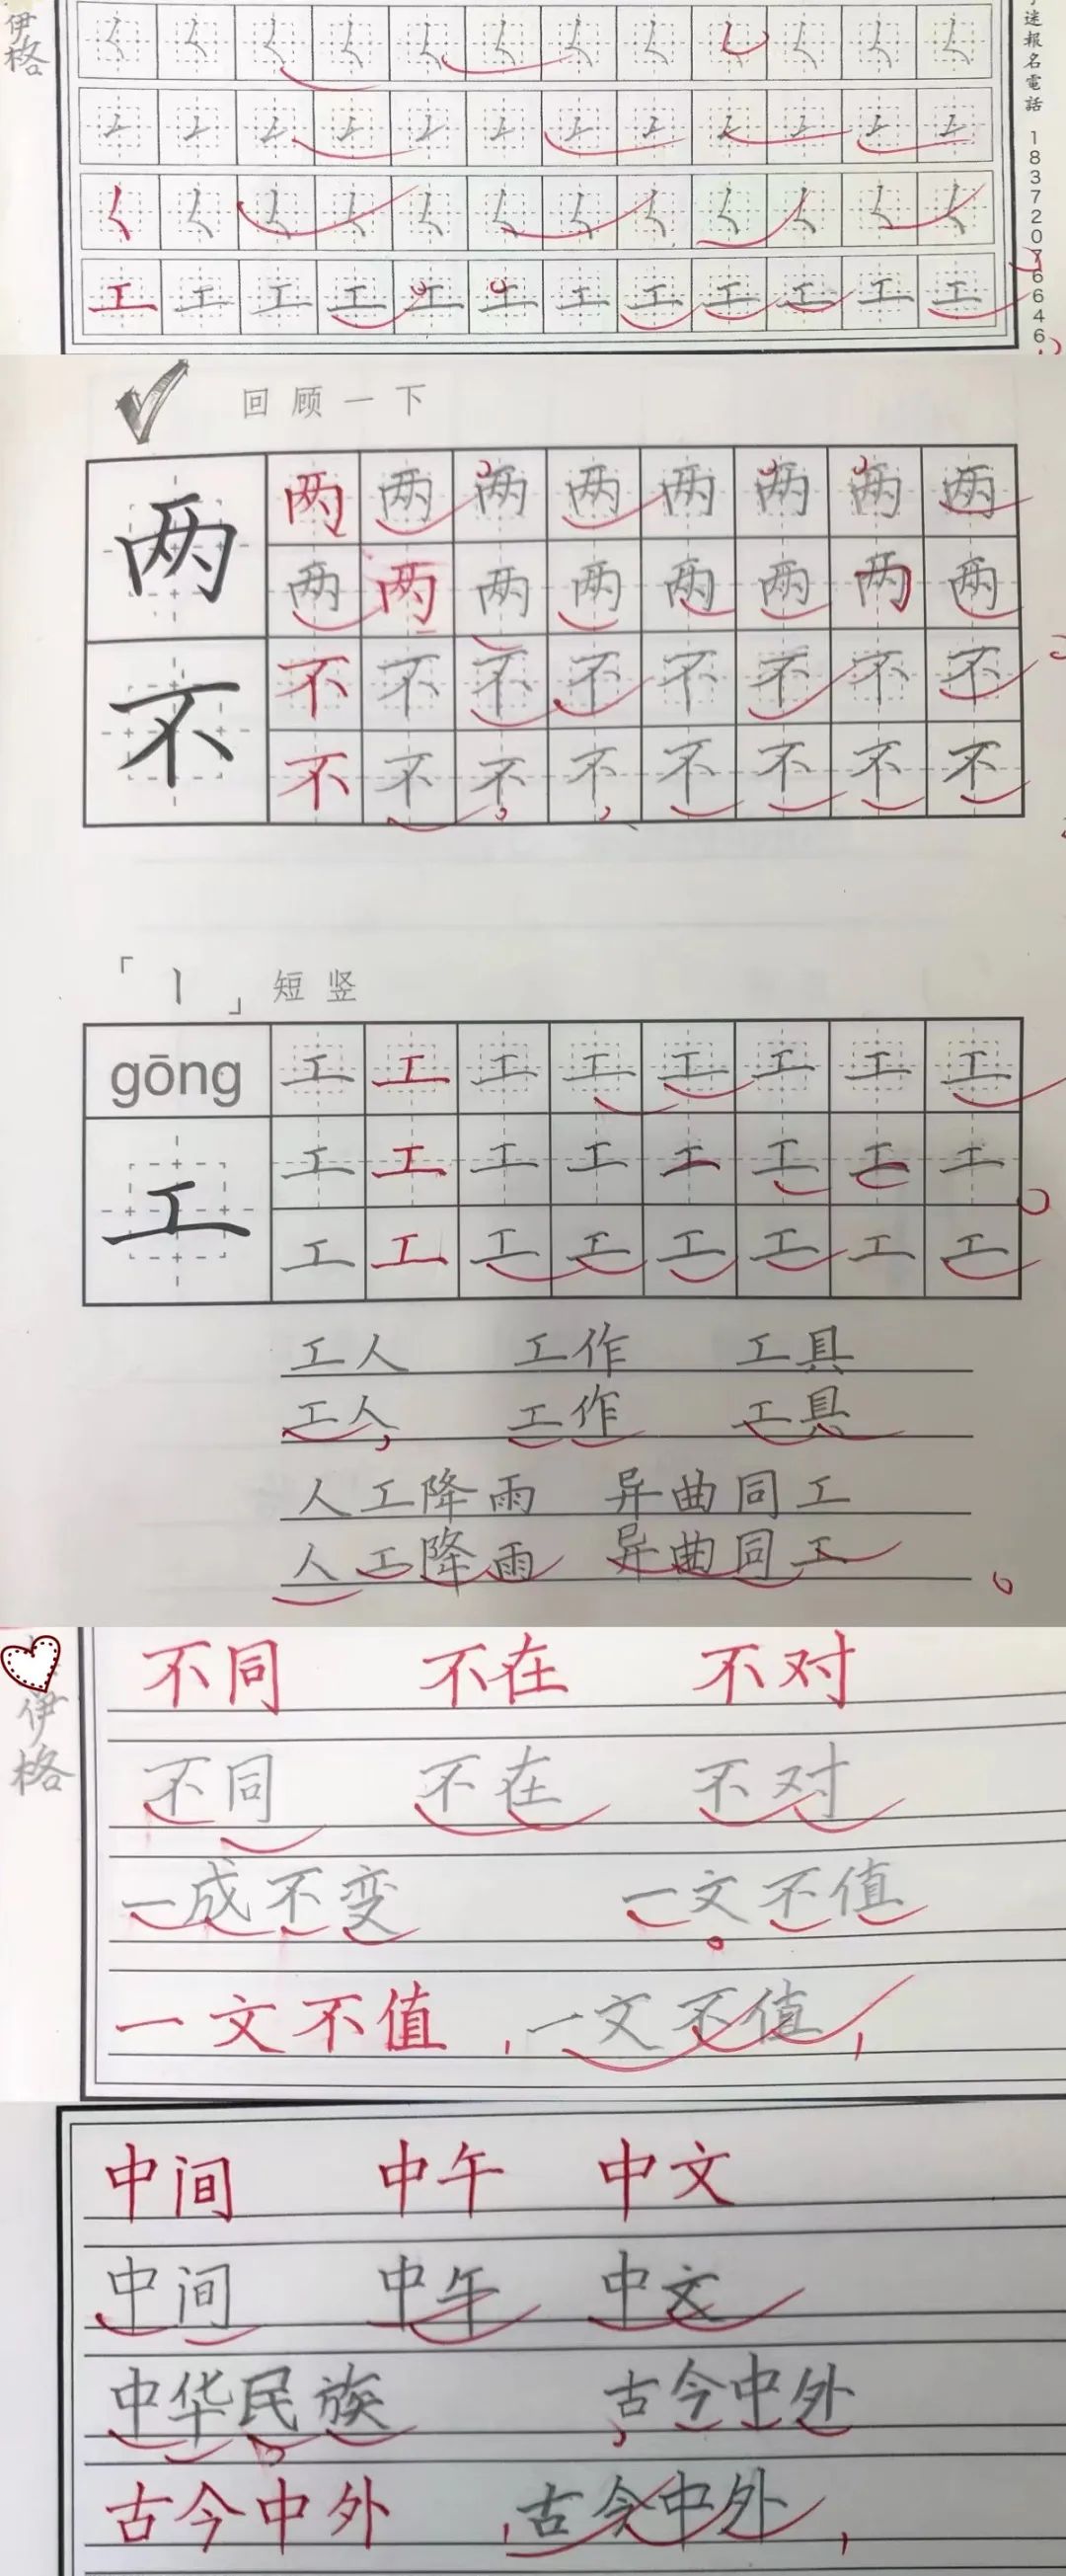 伊格
字迷報名電話 18372076646
工 工 工 工 工 工 工 工 工 工 工 工
回顾一下
两 两 两 两 两 两 两 两 两
两 两 两 两 两 两 两 两
不 不 不 不 不 不 不 不 不
不 不 不 不 不 不 不 不
「丨」短竖
gōng 工 工 工 工 工 工 工 工
工 工 工 工 工 工 工 工 工
工 工 工 工 工 工 工 工
工人 工作 工具
工人 工作 工具
人工降雨 异曲同工
人工降雨 异曲同工
伊格
不同 不在 不对
不同 不在 不对
一成不变 一文不值
一文不值 一文不值
中间 中午 中文
中间 中午 中文
中华民族 古今中外
古今中外 古今中外